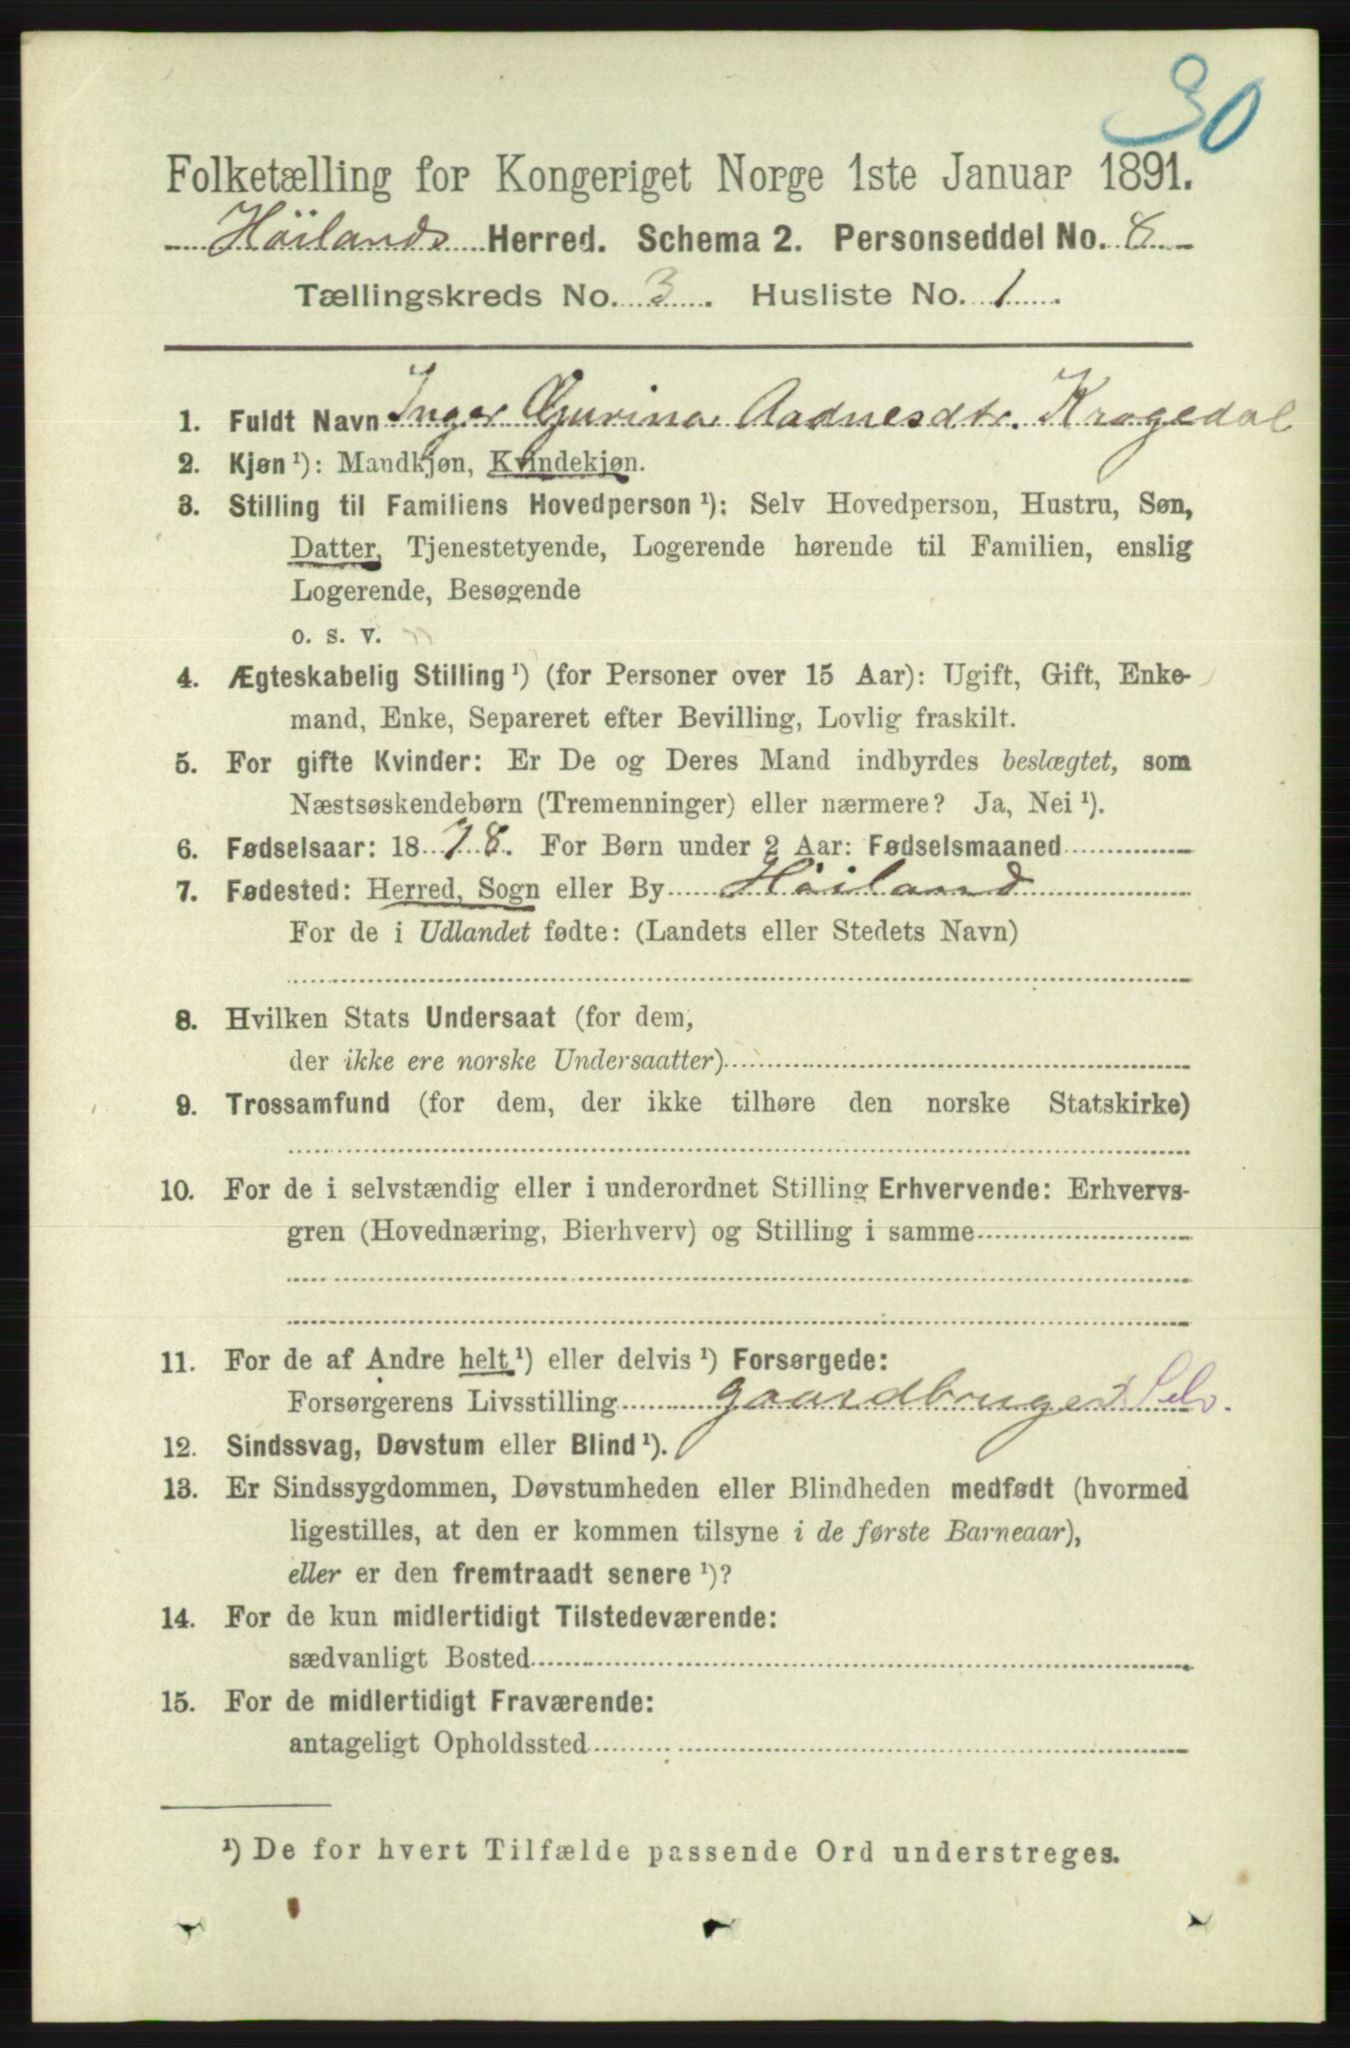 30
Folketælling for Kongeriget Norge 1ste Januar 1891.
Höilands Herred. Schema 2. Personseddel No. 8
Tællingskreds No. 3. Husliste No. 1.
1. Fuldt Navn Inger Gurina Aadnesdtr. Kragedal
2. Kjøn ¹): Mandkjøn, Kvindekjøn.
3. Stilling til Familiens Hovedperson ¹): Selv Hovedperson, Hustru, Søn,
Datter, Tjenestetyende, Logerende hørende til Familien, enslig
Logerende, Besøgende
o. s. v.
4. Ægteskabelig Stilling ¹) (for Personer over 15 Aar): Ugift, Gift, Enke-
mand, Enke, Separeret efter Bevilling, Lovlig fraskilt.
5. For gifte Kvinder: Er De og Deres Mand indbyrdes beslægtet, som
Næstsøskendebørn (Tremenninger) eller nærmere? Ja, Nei ¹).
6. Fødselsaar: 1878. For Børn under 2 Aar: Fødselsmaaned
7. Fødested: Herred, Sogn eller By Höiland
For de i Udlandet fødte: (Landets eller Stedets Navn)
8. Hvilken Stats Undersaat (for dem,
der ikke ere norske Undersaatter)
9. Trossamfund (for dem, der ikke tilhøre den norske Statskirke)
10. For de i selvstændig eller i underordnet Stilling Erhvervende: Erhvervs-
gren (Hovednæring, Bierhverv) og Stilling i samme
11. For de af Andre helt ¹) eller delvis ¹) Forsørgede:
Forsørgerens Livsstilling gaardbruger Selv.
12. Sindssvag, Døvstum eller Blind ¹).
13. Er Sindssygdommen, Døvstumheden eller Blindheden medfødt (hvormed
ligestilles, at den er kommen tilsyne i de første Barneaar),
eller er den fremtraadt senere ¹)?
14. For de kun midlertidigt Tilstedeværende:
sædvanligt Bosted
15. For de midlertidigt Fraværende:
antageligt Opholdssted
¹) De for hvert Tilfælde passende Ord understreges.